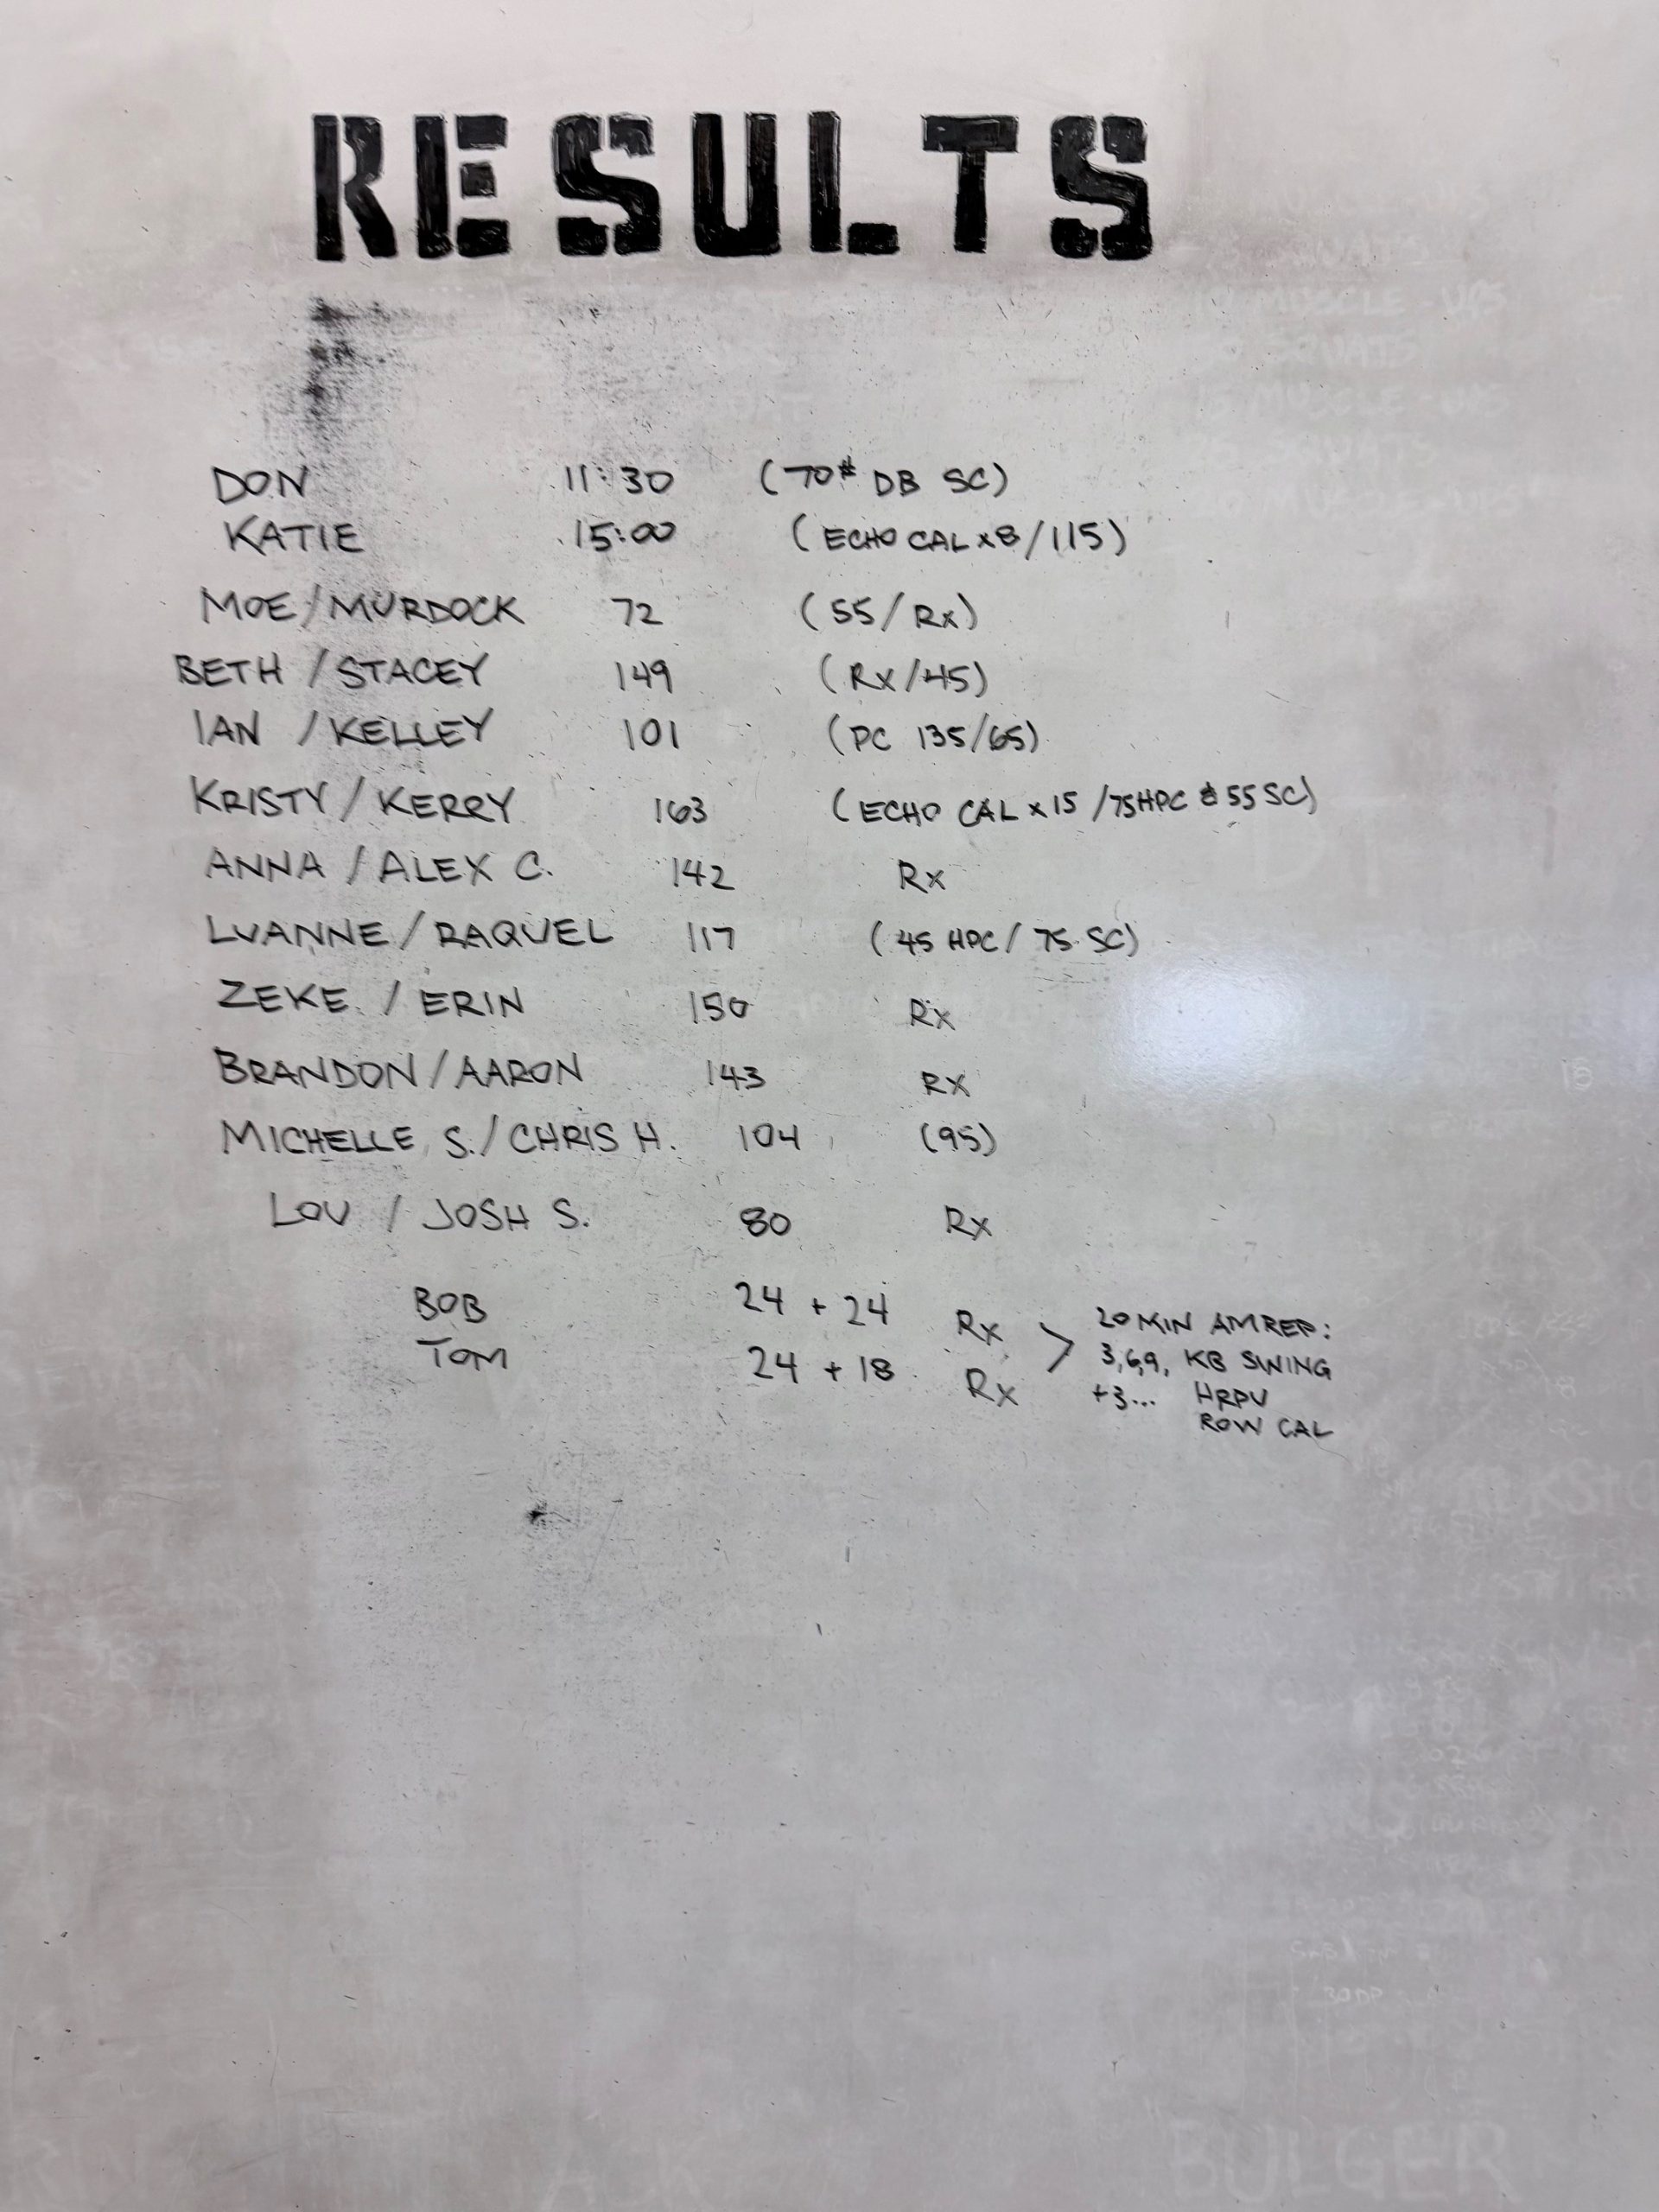 RESULTS
DON 11:30 (70# DB SC)
KATIE 15:00 (ECHO CAL x8/115)
MOE/MURDOCK 72 (55/Rx)
BETH/STACEY 149 (Rx/45)
IAN/KELLEY 101 (PC 135/65)
KRISTY/KERRY 163 (ECHO CAL x15/75HPC & 55 SC)
ANNA/ALEX C. 142 Rx
LUANNE/RAQUEL 117 (45 HPC/75 SC)
ZEKE/ERIN 150 Rx
BRANDON/AARON 143 RX
MICHELLE S./CHRIS H. 104 (95)
LOU/JOSH S. 80 Rx
BOB 24 + 24 Rx > 20 MIN AMREP:
TOM 24 + 18 Rx 3,6,9, KB SWING
+3... HRPU
ROW CAL
BULGER